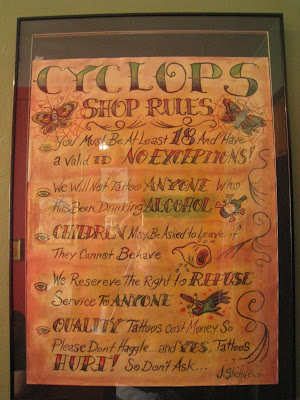 CYCLOPS
SHOP RULES
You Must Be At Least 18 And Have
a Valid ID NO EXCEPTIONS!
We Will Not Tattoo ANYONE Who
Has Been Drinking ALCOHOL
CHILDREN May Be Asked to Leave if
They Cannot Behave
We Resereve The Right to REFUSE
Service To ANYONE
QUALITY Tattoos Cost Money So
Please Don't Haggle... and YES, Tattoos
HURT! So Don't Ask...